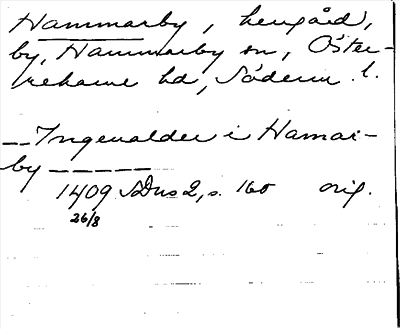 Hammarby, herrgård,
by, Hammarby sn, Öster-
rekarne hd, Söderm. l.
-- Ingeualder i Hamar-
by ------
1409 SDns 2, s. 160 orig.
26/8